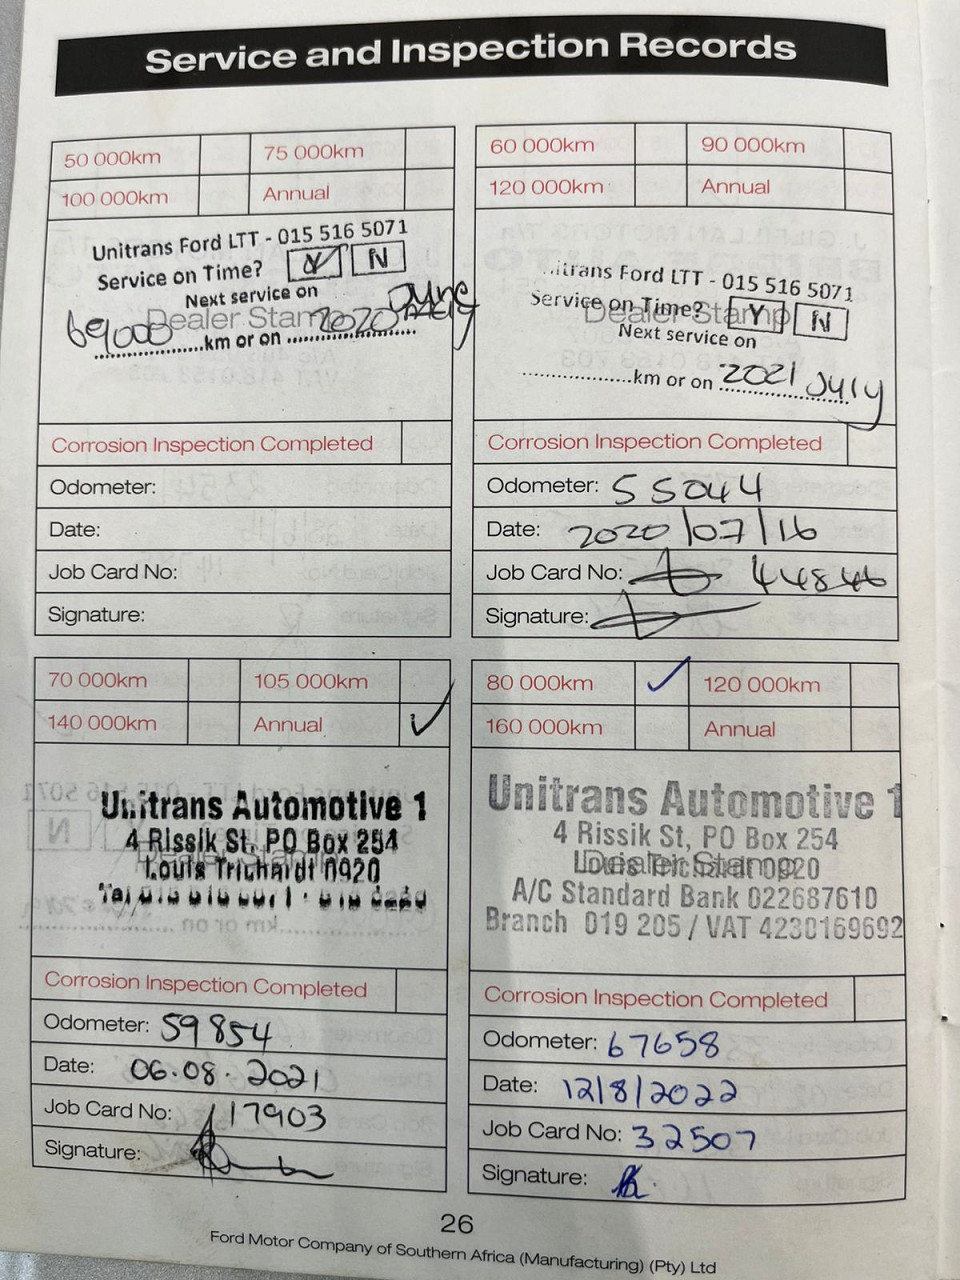 Service and Inspection Records
50 000km 75 000km
100 000km Annual
Unitrans Ford LTT - 015 516 5071
Service on Time? Y N
Next service on
Dealer Stamp
69000 km or on 2020 June
Corrosion Inspection Completed
Odometer:
Date:
Job Card No:
Signature:
60 000km 90 000km
120 000km Annual
itrans Ford LTT - 015 516 5071
Service on Time? Y N
Dealer Stamp
Next service on
km or on 2021 July
Corrosion Inspection Completed
Odometer: 55044
Date: 2020/07/16
Job Card No: 44846
Signature:
70 000km 105 000km
140 000km Annual ✓
Unitrans Automotive 1
4 Rissik St, PO Box 254
Dealer Stamp
Louis Trichardt 0920
Corrosion Inspection Completed
Odometer: 59854
Date: 06.08.2021
Job Card No: 117903
Signature:
80 000km ✓ 120 000km
160 000km Annual
Unitrans Automotive 1
4 Rissik St, PO Box 254
Dealer Stamp
Louis Trichardt 0920
A/C Standard Bank 022687610
Branch 019 205 / VAT 4230169692
Corrosion Inspection Completed
Odometer: 67658
Date: 12/8/2022
Job Card No: 32507
Signature:
26
Ford Motor Company of Southern Africa (Manufacturing) (Pty) Ltd